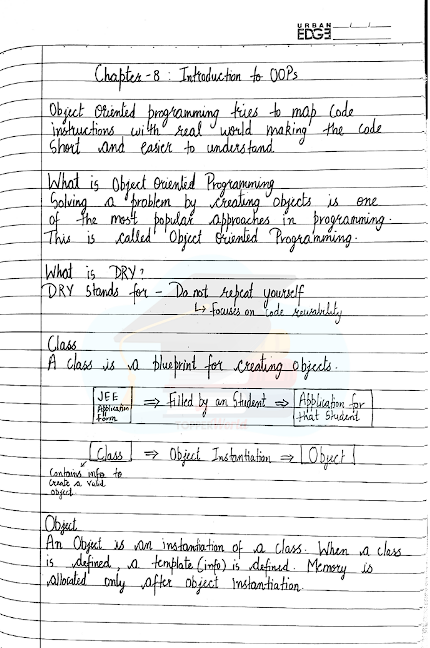 URBAN
EDGE
Chapter - 8 : Introduction to OOPs
Object Oriented programming tries to map code
instructions with real world making the code
short and easier to understand
What is Object Oriented Programming
Solving a problem by creating objects is one
of the most popular approaches in programming.
This is called Object Oriented Programming.
What is DRY?
DRY stands for - Do not repeat yourself
↳ focuses on code reusability
Class
A class is a blueprint for creating objects.
JEE
Application
form
⇒ Filled by an Student ⇒
Application for
that Student
Class ⇒ Object Instantiation ⇒ Object
Contains info to
create a valid
object
Object
An Object is an instantiation of a class. When a class
is defined, a template (info) is defined. Memory is
allocated only after object instantiation